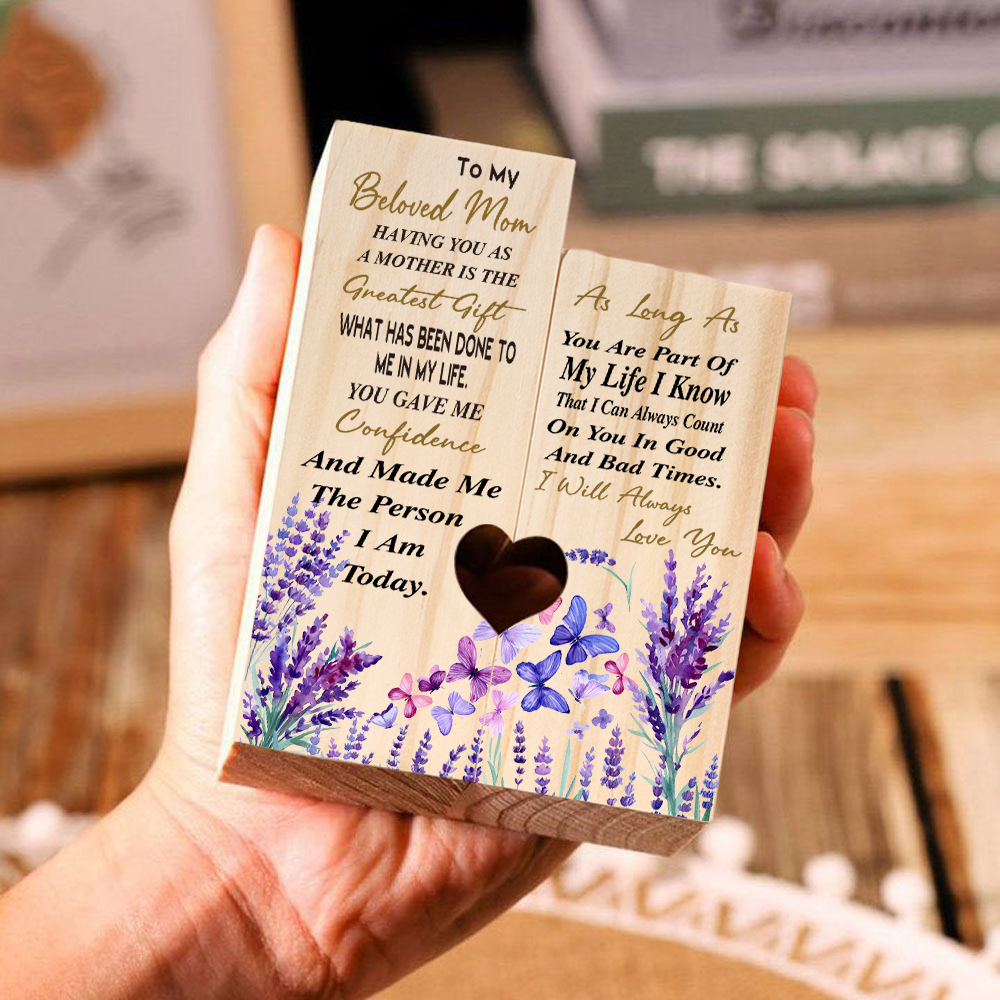 To My
Beloved Mom
HAVING YOU AS
A MOTHER IS THE
Greatest Gift
WHAT HAS BEEN DONE TO
ME IN MY LIFE.
YOU GAVE ME
Confidence
And Made Me
The Person
I Am
Today.
As Long As
You Are Part Of
My Life I Know
That I Can Always Count
On You In Good
And Bad Times.
I Will Always
Love You
THE SOLACE